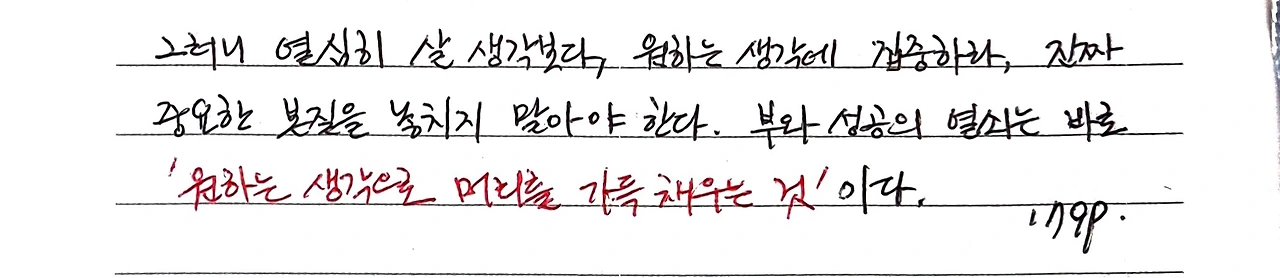 그러니 열심히 살 생각보다, 원하는 생각에 집중하라, 진짜
중요한 본질을 놓치지 말아야 한다. 부와 성공의 열쇠는 바로
'원하는 생각으로 머리를 가득 채우는 것' 이다.
179p.